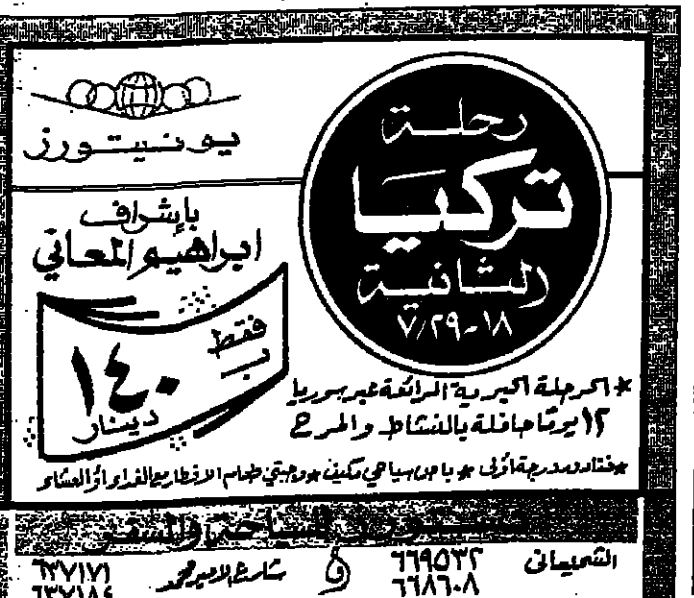 يونيتورز
رحلة
تركيا
الثانية
١٨-٢٩/٧
بإشراف
ابراهيم المعاني
فقط
ب
١٤٠
دينار
* الرحلة البرية الرائعة عبر سوريا
١٢ يومًا حافلة بالنشاط والمرح
* فنادق درجة أولى * باص سياحي مكيف * وجبتي طعام الافطار مع الغداء أو العشاء
للسياحة والسفر
الشميساني ٦٦٩٥٣٢ و شارع الامير محمد ٦٣٧١٧١
٦٦٨٦٠٨